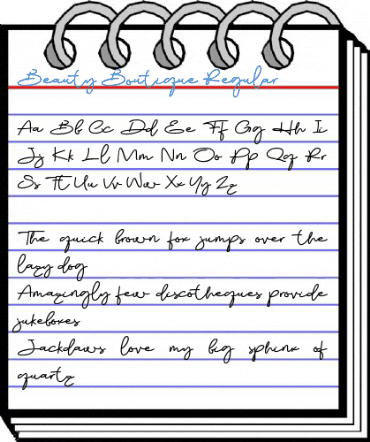 Beauty Boutique Regular
Aa Bb Cc Dd Ee Ff Gg Hh Ii
Jj Kk Ll Mm Nn Oo Pp Qq Rr
Ss Tt Uu Vv Ww Xx Yy Zz
The quick brown fox jumps over the
lazy dog
Amazingly few discotheques provide
jukeboxes
Jackdaws love my big sphinx of
quartz